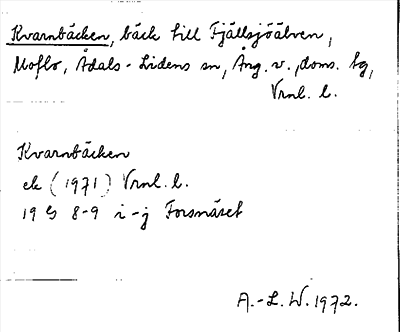 Kvarnbäcken, bäck till Fjällsjöälven,
Moflo, Ådals-Lidens sn, Ång. v., doms. tg,
Vrnl. l.
Kvarnbäcken
ek (1971) Vrnl. l.
19 G 8-9 i-j Forsnäset
A.-L. W. 1972.